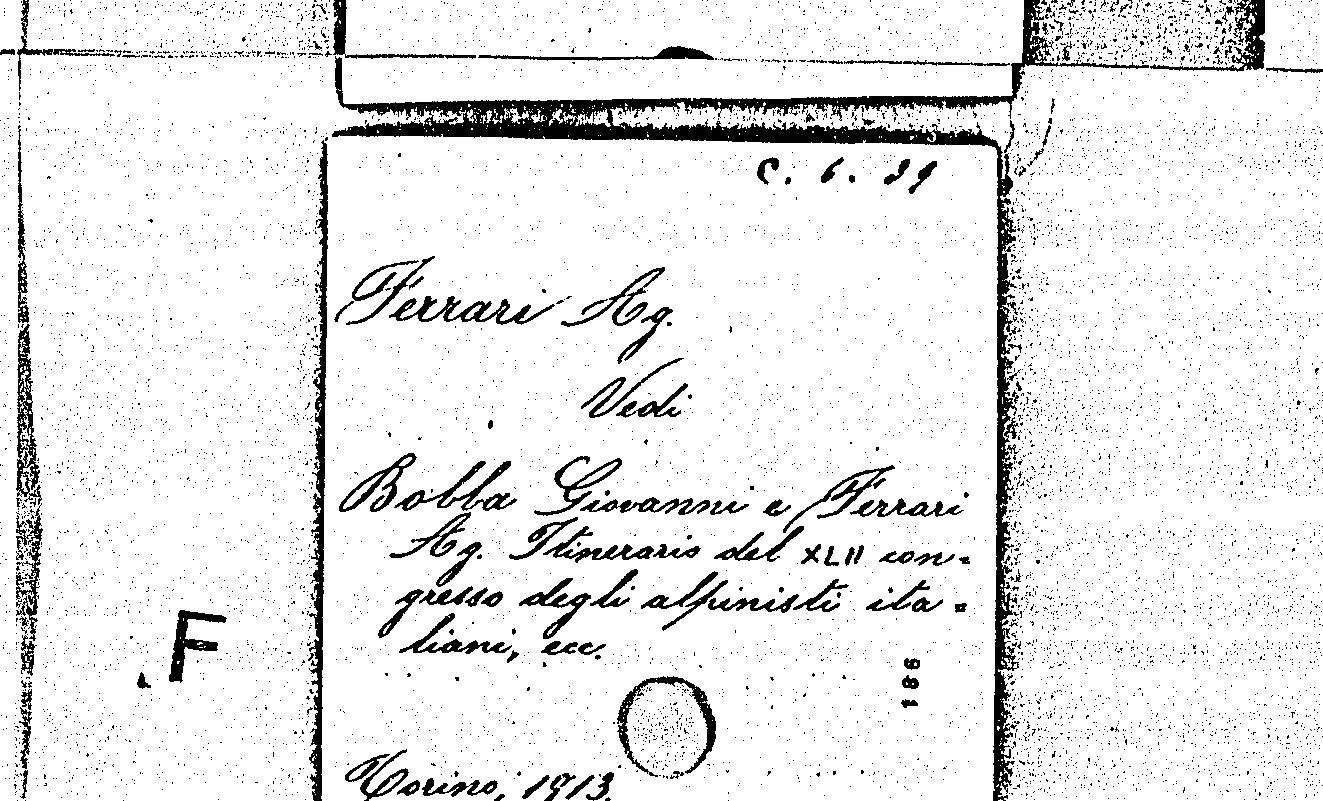 C. 6. 39
Ferrari Ag.
Vedi
Bobba Giovanni e Ferrari
Ag. Itinerario del XLII con=
gresso degli alpinisti ita=
liani, ecc.
F
186
Torino, 1913.